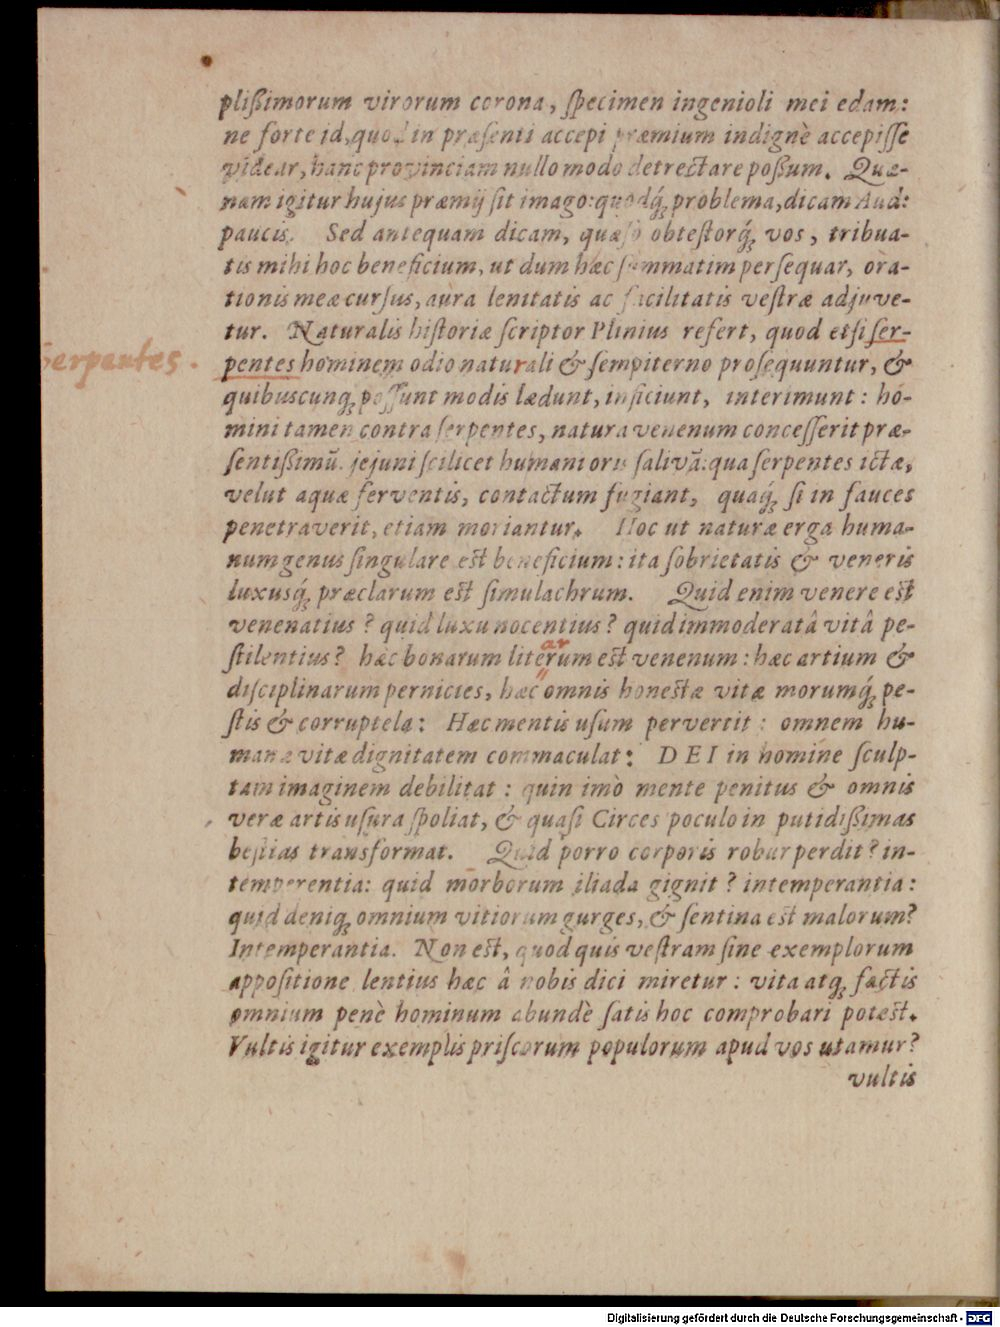 plißimorum virorum corona, ſpecimen ingenioli mei edam:
ne forte id, quod in præſenti accepi præmium indignè accepiſſe
videar, hanc provinciam nullo modo detrectare poßum. Quæ-
nam igitur hujus præmij ſit imago: quodq́; problema, dicam Aud:
paucis. Sed antequam dicam, quæſo obteſtorq́; vos, tribua-
tis mihi hoc beneficium, ut dum hæc ſummatim perſequar, ora-
tionis meæ curſus, aura lenitatis ac facilitatis veſtræ adjuve-
tur. Naturalis hiſtoriæ ſcriptor Plinius refert, quod etſi ſer-
Serpentes.
pentes hominem odio naturali & ſempiterno proſequuntur, &
quibuscunq; poſſunt modis lædunt, inficiunt, interimunt: ho-
mini tamen contra ſerpentes, natura venenum conceſſerit præ-
ſentißimū. jejuni ſcilicet humani oris ſalivā: qua ſerpentes ictæ,
velut aquæ ferventis, contactum fugiant, quaq́; ſi in fauces
penetraverit, etiam moriantur. Hoc ut naturæ erga huma-
num genus ſingulare est beneficium: ita ſobrietatis & veneris
luxusq́; præclarum est ſimulachrum. Quid enim venere est
venenatius? quid luxu nocentius? quid immoderatâ vitâ pe-
ar
ſtilentius? hæc bonarum literum est venenum: hæc artium &
diſciplinarum pernicies, hæc omnis honestæ vitæ morumq́; pe-
ſtis & corruptela: Hæc mentis uſum pervertit: omnem hu-
manæ vitæ dignitatem commaculat: DEI in homine ſculp-
tam imaginem debilitat: quin imò mente penitus & omnis
veræ artis uſura ſpoliat, & quaſi Circes poculo in putidißimas
beſtias transformat. Quid porro corporis robur perdit? in-
temperentia: quid morborum iliada gignit? intemperantia:
quid deniq; omnium vitiorum gurges, & ſentina est malorum?
Intemperantia. Non est, quod quis veſtram ſine exemplorum
appoſitione lentius hæc â nobis dici miretur: vita atq; factis
omnium penè hominum abundè ſatis hoc comprobari potest.
Vultis igitur exemplis priſcorum populorum apud vos utamur?
vultis
Digitalisierung gefördert durch die Deutsche Forschungsgemeinschaft - DFG